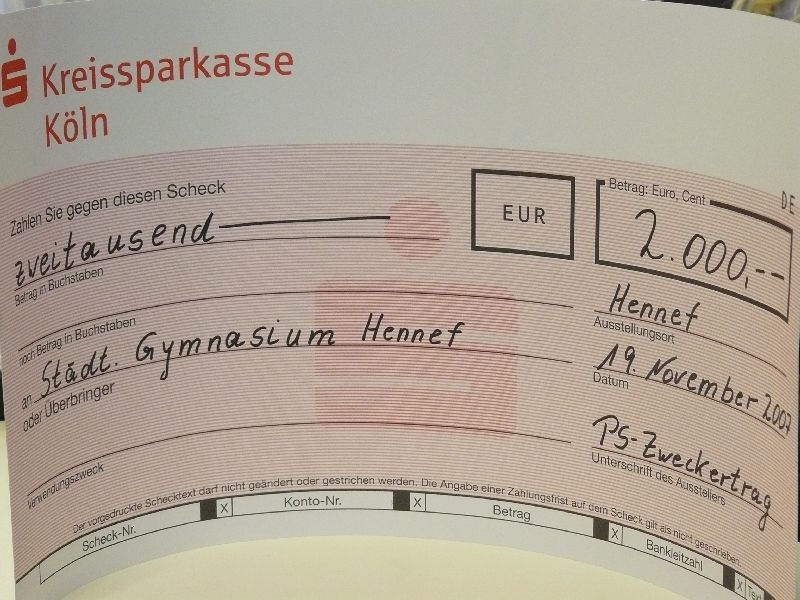 Kreissparkasse
Köln
DE
Zahlen Sie gegen diesen Scheck
zweitausend
Betrag in Buchstaben
EUR
Betrag: Euro, Cent
2.000,--
noch Betrag in Buchstaben
Hennef
Ausstellungsort
an Städt. Gymnasium Hennef
oder Überbringer
19. November 2007
Datum
PS-Zweckertrag
Unterschrift des Ausstellers
Verwendungszweck
Der vorgedruckte Schecktext darf nicht geändert oder gestrichen werden. Die Angabe einer Zahlungsfrist auf dem Scheck gilt als nicht geschrieben.
Scheck-Nr. X Konto-Nr. X Betrag X Bankleitzahl X Text